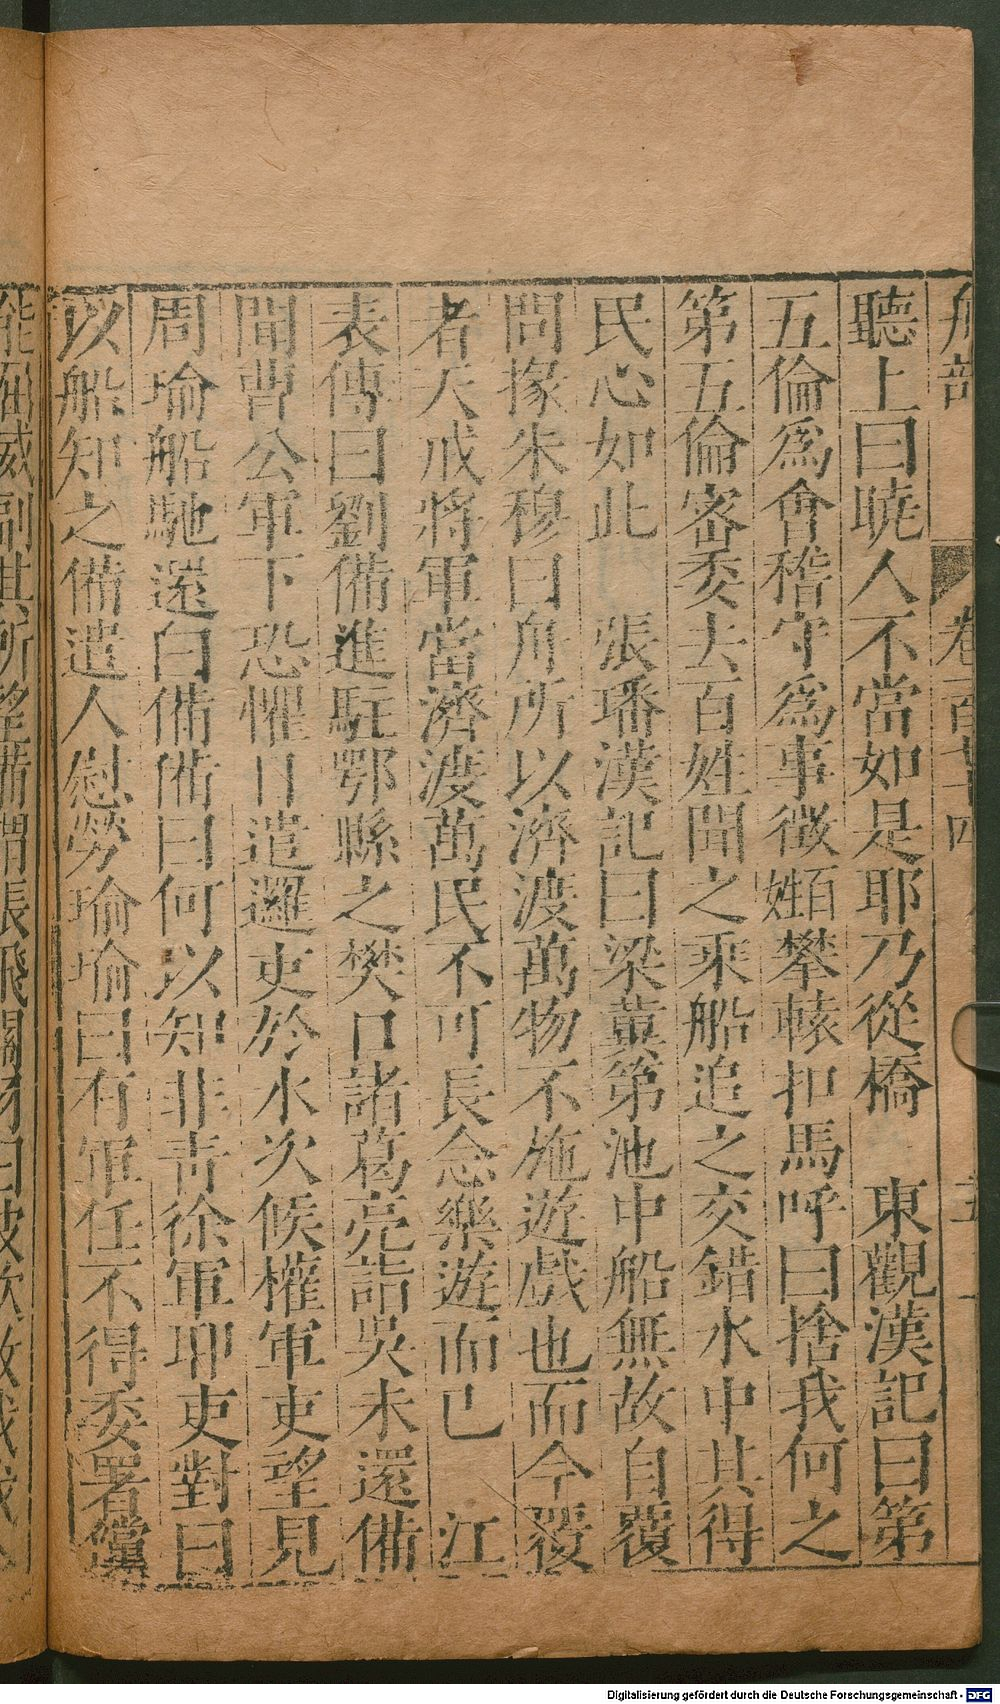 舟部 卷一百七十四
聽上曰曉人不當如是耶乃從橋 東觀漢記曰第
五倫爲會稽守爲事徵百姓攀轅扣馬呼曰捨我何之
第五倫密委去百姓聞之乘船追之交錯水中其得
民心如此 張璠漢記曰梁冀第池中船無故自覆
問掾朱穆曰舟所以濟渡萬物不施遊戲也而今覆
者天戒將軍當濟渡萬民不可長念樂遊而已 江
表傳曰劉備進駐鄂縣之樊口諸葛亮詣吳未還備
聞曹公軍下恐懼日遣邏吏於水次候權軍吏望見
周瑜船馳還白備備曰何以知非青徐軍耶吏對曰
以船知之備遣人慰勞瑜瑜曰有軍任不得委署儻
能屈威副其所望備謂張飛關羽曰彼欲致我我
Digitalisierung gefördert durch die Deutsche Forschungsgemeinschaft - DFG